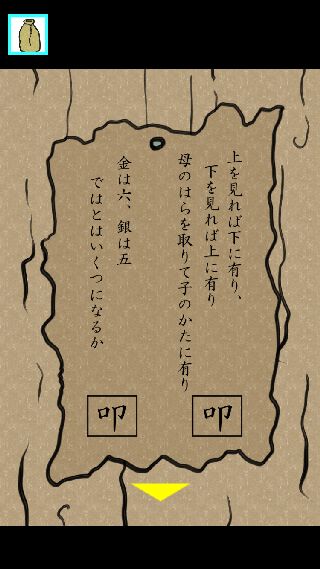 上を見れば下に有り、
下を見れば上に有り
母のはらを取りて子のかたに有り
金は六、銀は五
ではとはいくつになるか
叩
叩